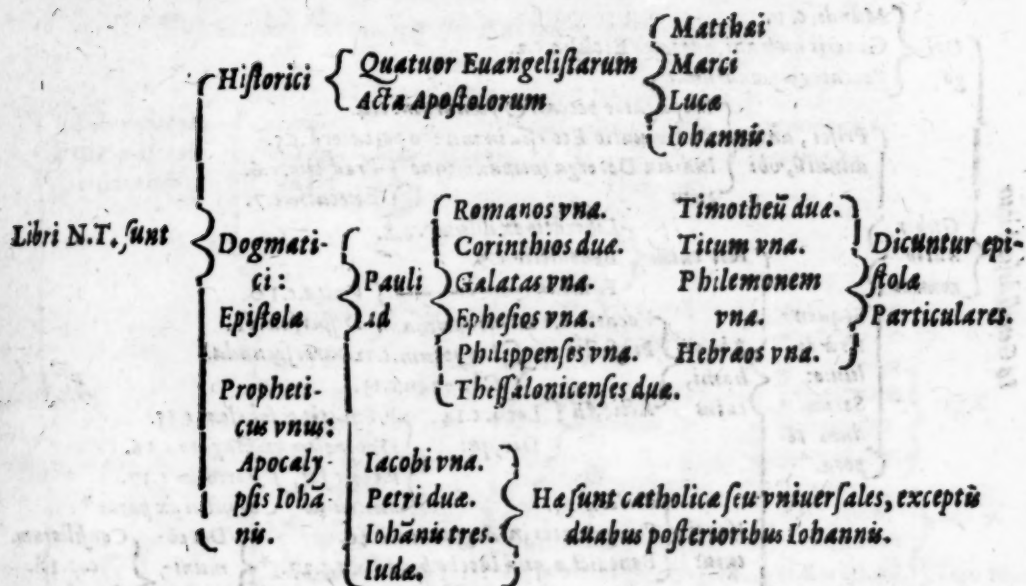 Libri N.T. ſunt
Hiſtorici
Quatuor Euangeliſtarum
Acta Apoſtolorum
Matthæi
Marci
Lucæ
Iohannis.
Dogmati-
ci:
Epiſtolæ
Pauli
ad
Romanos vna.
Corinthios duæ.
Galatas vna.
Epheſios vna.
Philippenſes vna.
Theſſalonicenſes duæ.
Timotheū duæ.
Titum vna.
Philemonem
vna.
Hebræos vna.
Dicuntur epi-
ſtolæ
Particulares.
Iacobi vna.
Petri duæ.
Iohānis tres.
Iudæ.
Hæ ſunt catholicæ ſeu vniuerſales, exceptis
duabus poſterioribus Iohannis.
Propheti-
cus vnus:
Apocaly-
pſis Iohā
nis.